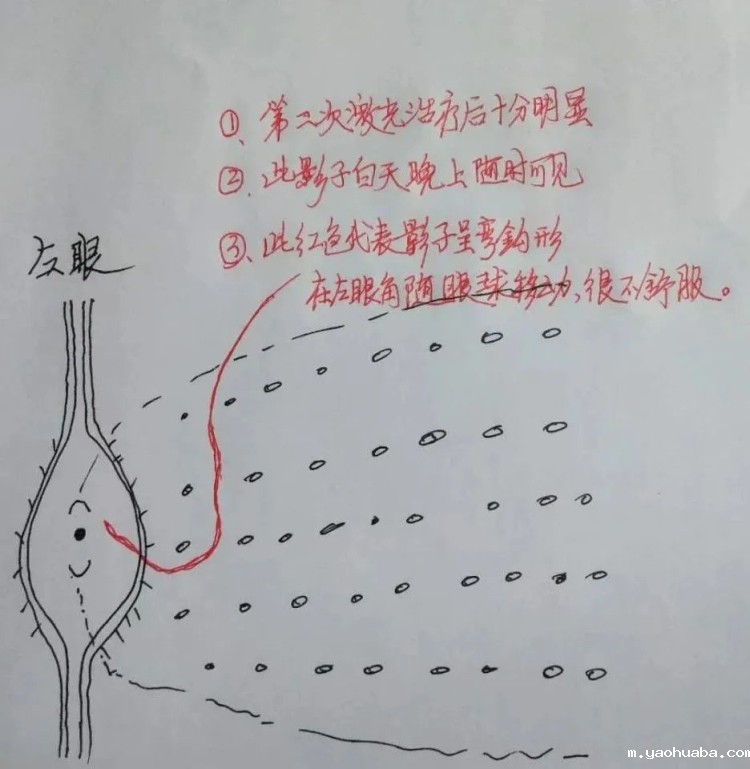 ①、第二次激光治疗后十分明显
②、此影子白天晚上随时可见
③、此红色代表影子呈弯鈎形
在左眼角随眼球移动,很不舒服。
左眼
m.yaohuaba.com